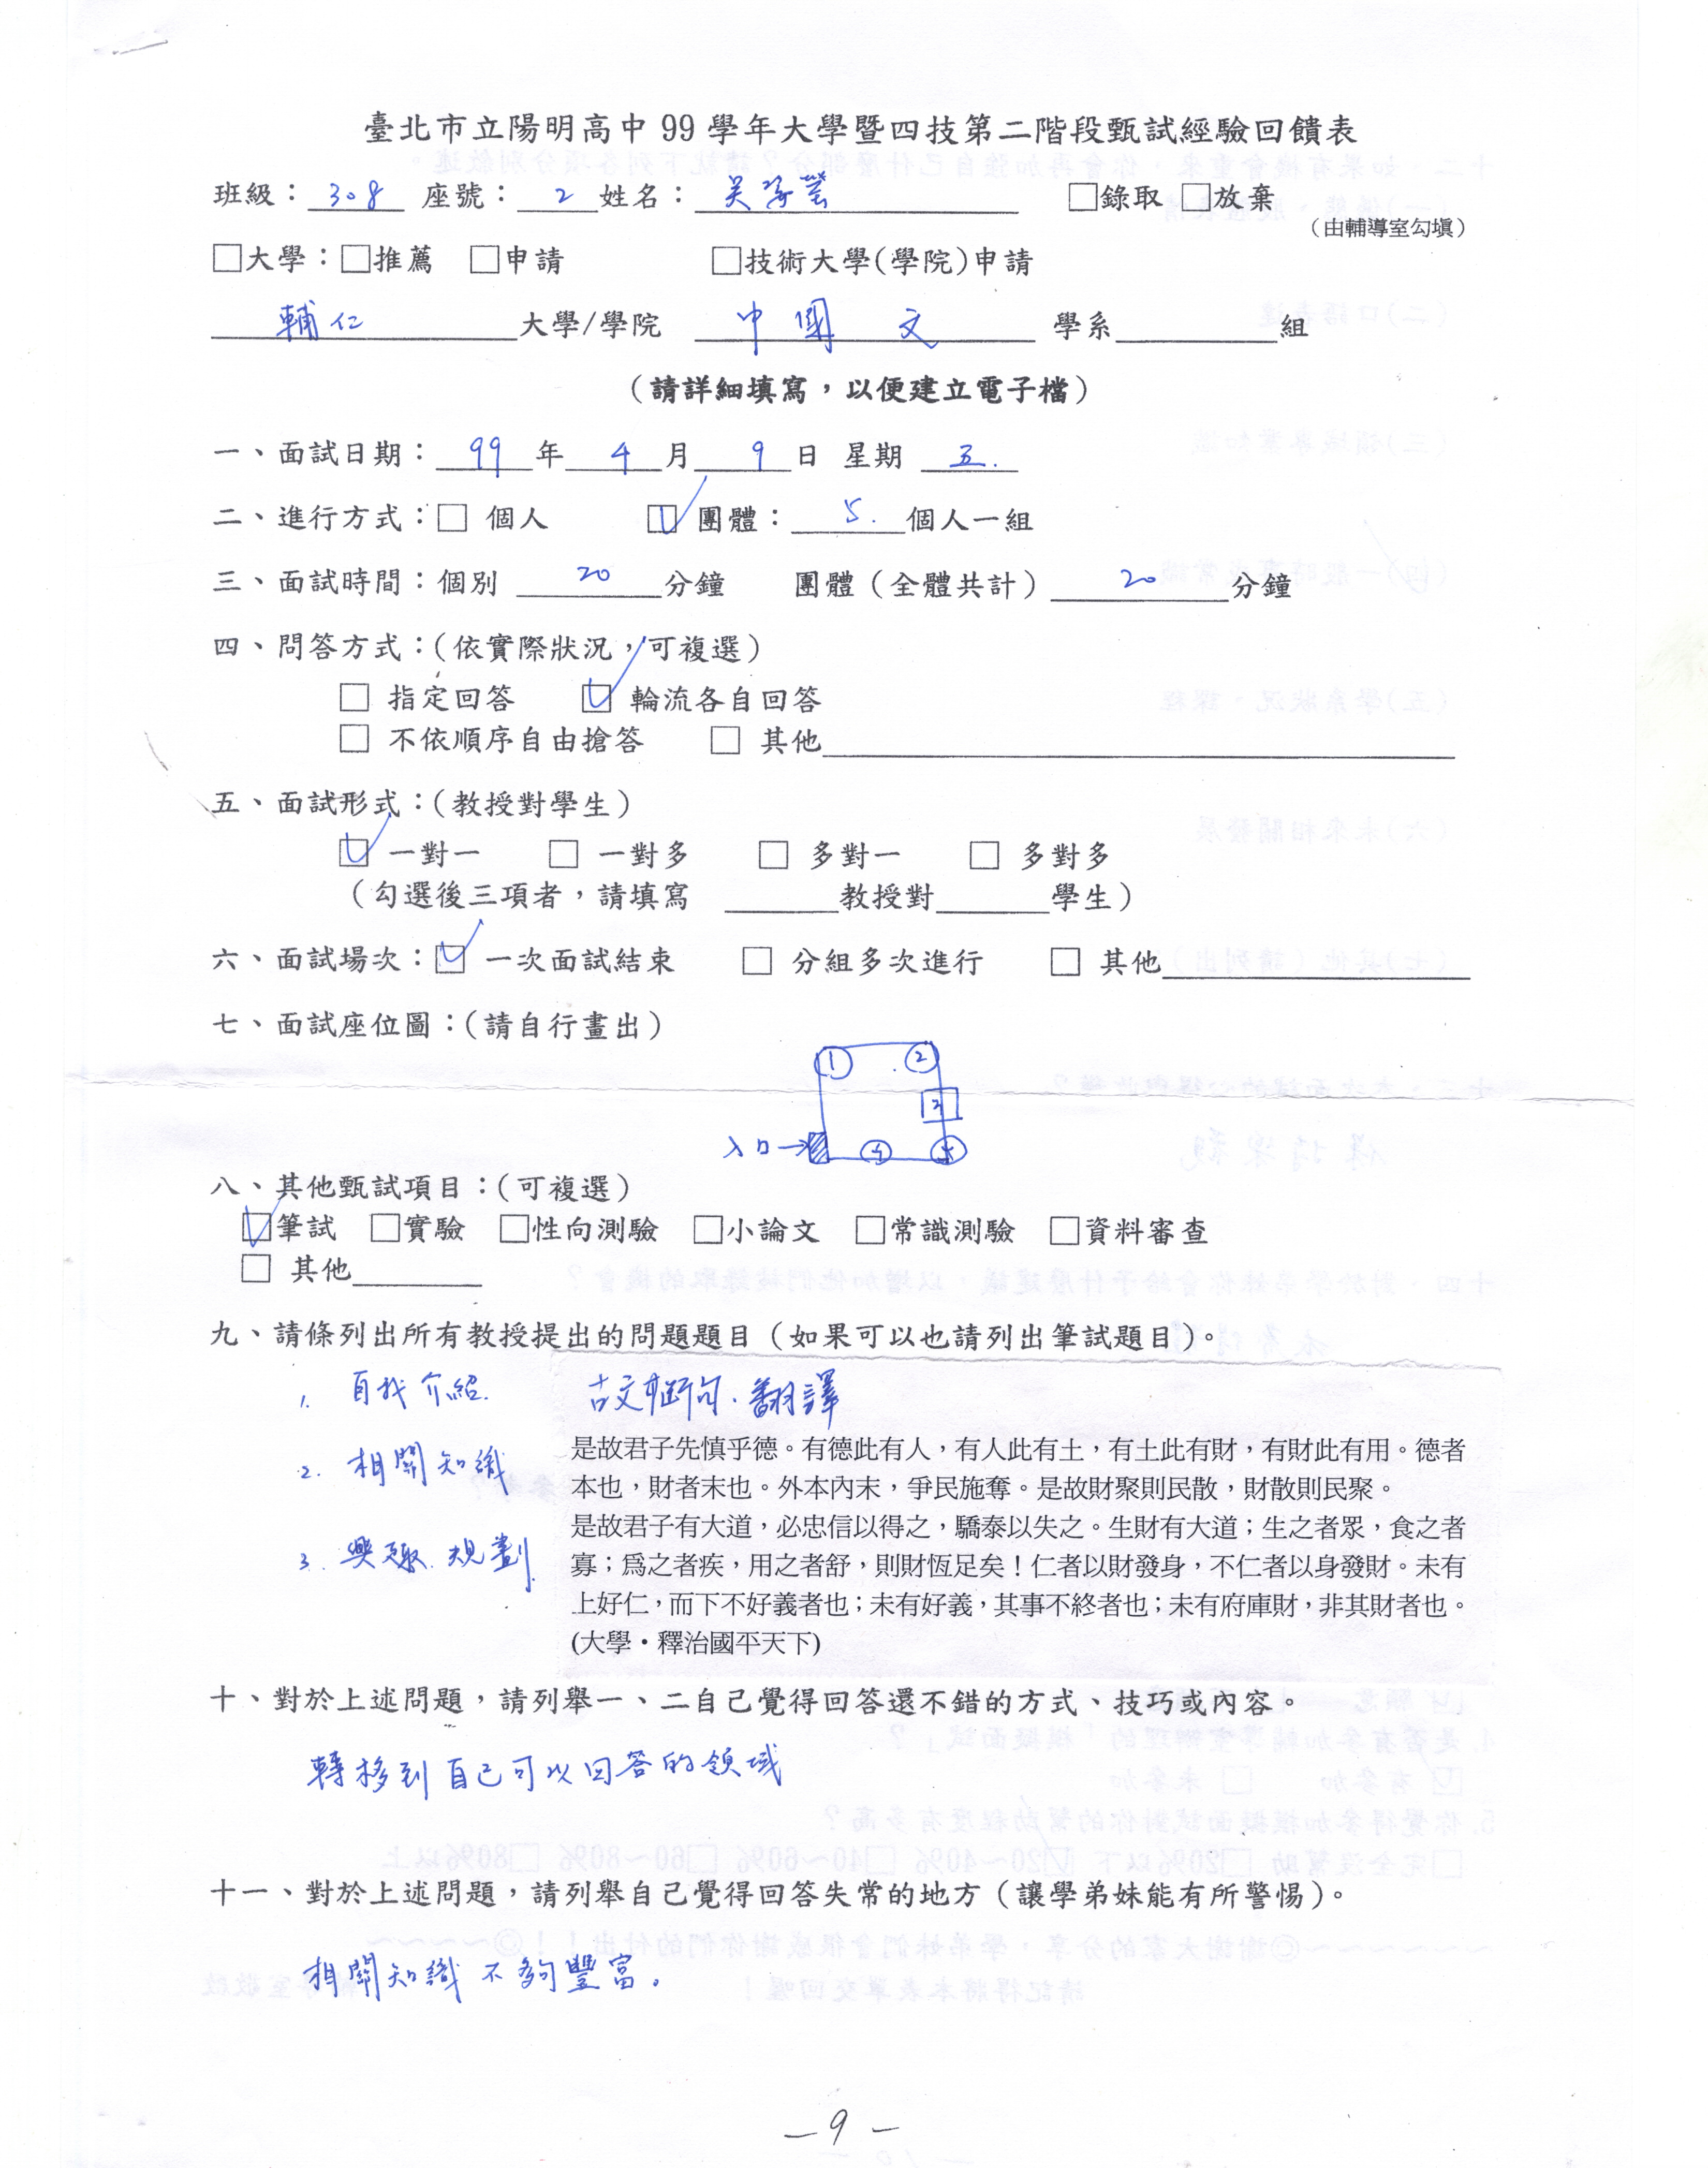 臺北市立陽明高中 99 學年大學暨四技第二階段甄試經驗回饋表
班級：308 座號：2 姓名：吳 □錄取 □放棄
（由輔導室勾填）
□大學：□推薦 □申請 □技術大學(學院)申請
輔仁大學/學院 中國文 學系 組
（請詳細填寫，以便建立電子檔）
一、面試日期：99 年 4 月 9 日 星期 五.
二、進行方式：□ 個人 ☑ 團體：5. 個人一組
三、面試時間：個別 20 分鐘 團體（全體共計）20 分鐘
四、問答方式：(依實際狀況，可複選)
□ 指定回答 ☑ 輪流各自回答
□ 不依順序自由搶答 □ 其他
五、面試形式：(教授對學生)
☑ 一對一 □ 一對多 □ 多對一 □ 多對多
（勾選後三項者，請填寫 教授對 學生）
六、面試場次：☑ 一次面試結束 □ 分組多次進行 □ 其他
七、面試座位圖：(請自行畫出)
① ②
入口→ ④
八、其他甄試項目：(可複選)
☑筆試 □實驗 □性向測驗 □小論文 □常識測驗 □資料審查
□ 其他
九、請條列出所有教授提出的問題題目（如果可以也請列出筆試題目）。
1. 自我介紹. 古文斷句.翻譯
2. 相關知識
3. 興趣.規劃.
是故君子先慎乎德。有德此有人，有人此有土，有土此有財，有財此有用。德者
本也，財者末也。外本內末，爭民施奪。是故財聚則民散，財散則民聚。
是故君子有大道，必忠信以得之，驕泰以失之。生財有大道；生之者眾，食之者
寡；為之者疾，用之者舒，則財恆足矣！仁者以財發身，不仁者以身發財。未有
上好仁，而下不好義者也；未有好義，其事不終者也；未有府庫財，非其財者也。
(大學・釋治國平天下)
十、對於上述問題，請列舉一、二自己覺得回答還不錯的方式、技巧或內容。
轉移到自己可以回答的領域
十一、對於上述問題，請列舉自己覺得回答失常的地方（讓學弟妹能有所警惕）。
相關知識不夠豐富。
－9－